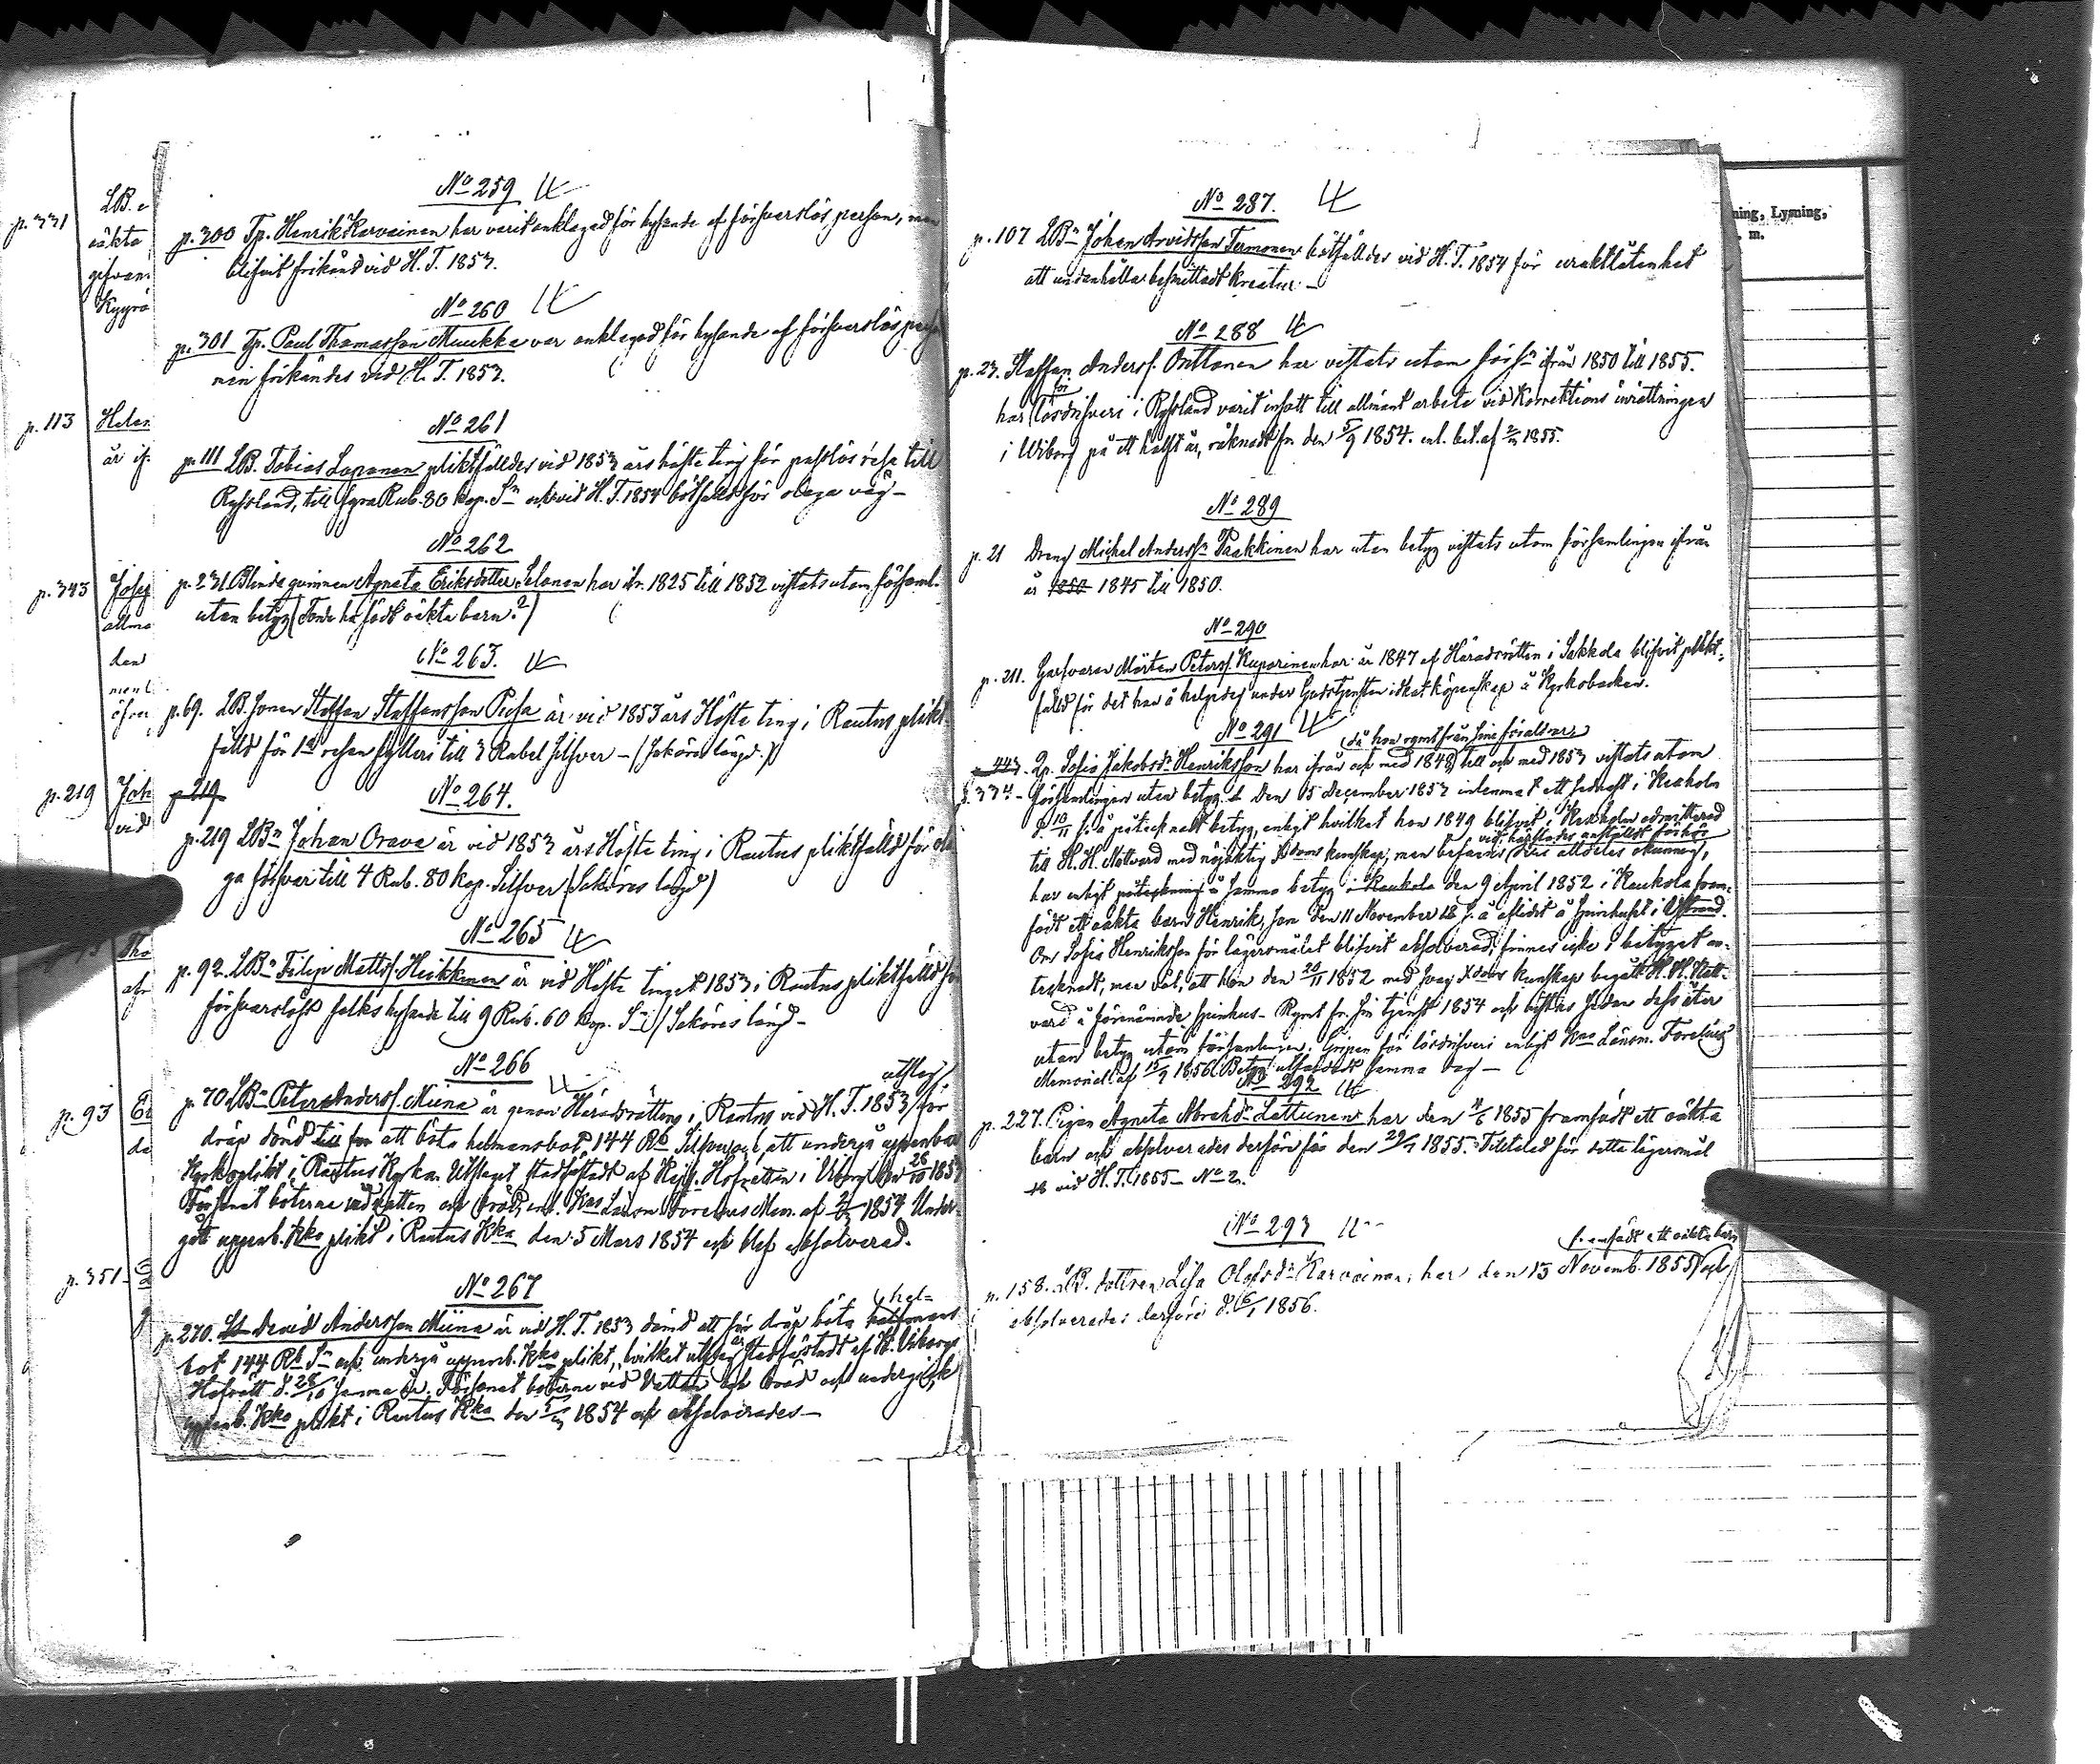 p. 331
LB.
oäkta
gifvan
Kyyrö
p. 113
Helen
är if.
p. 343
Josep
allmo
den
p. 219
Joh
vid
Tho
p. 93
Er
da
p. 351
No 259
p. 300 Tp. Henrik Karvainen har varit anklagad för hysande af försvarslös person, men
blifvit frikänd vid H. T. 1853.
No 260
p. 301 Tp. Paul Thomasson Muukka var anklagad för hysande af försvarslös person
men frikändes vid H. T. 1853.
No 261
p. 111 LB. Tobias Loponen pliktfälldes vid 1853 års höste ting för passlös resa till
Ryssland, till fyra Rub. 80 kop. Sr och vid H. T. 1854 bötfälld för olaga väg –
No 262
p. 231 Blinda qvinnan Agneta Eriksdotter Selonen har ifr. 1825 till 1852 vistats utom församl.
utan betyg (Torde ha födt oäkta barn?)
No 263.
p. 69. LB. sonen Staffan Staffansson Pusa är vid 1853 års Höste ting i Rautus plikt
fälld för 1a resan fylleri till 3 Rubel Silfver – (Saköres längd.)
p. 219
No 264.
p. 219 LBn Johan Orava är vid 1853 års Höste ting i Rautus pliktfälld för ola
ga försvar till 4 Rub. 80 kop. Silfver (Saköres längd)
No 265
p. 92. LBn Filip Mattss. Heikkinen är vid Höste tinget 1853 i Rautus pliktfälld för
försvarslöst folks hysande till 9 Rub. 60 kop. Sr (Saköres längd –
No 266
utslag
p. 70 LBn Peter Anderss. Miina är genom Häradsrättens i Rautus vid H. T. 1853 för
dråp dömd till för att böta helmansbot 144 Rb. Silfver och att undergå uppenbar
Kyrkoplikt i Rautus Kyrka. Utslaget stadfästadt af Kejs. Hofrätten i Viborg den 28/10 1853
Försonat böterne med vatten och bröd, enl. Kns Länsm. Forelius Mem. af 1854. Under-
gått uppenb. Kko plikt i Rautus Kka den 5 Mars 1854 och blef absolverad.
No 267
hel=
p. 270. David Andersson Miina är vid H. T. 1853 dömd att för dråp böta halfmans
bot 144 Rb Sr och undergå uppenb. Kko plikt, hvilket utslag är stadfästadt af K. Viborgs
Hofrätt d. 28/10 samma år. Försonat böterne vid Vatten och bröd och undergick
uppenb. Kko plikt i Rautus Kka den 5/3 1854 och absolverades –
ning, Lysning,
m.
No 287.
p. 107 LBn Johan Arvidsson Termonen bötfälldes vid H. T. 1854 för uraktlåtenhet
att undanhålla besmittadt kreatur –
No 288
p. 23. Staffan Anderss. Onttonen har vistats utom förs:n ifrån 1850 till 1855.
för
har lösdrifveri i Ryssland varit insatt till allmänt arbete vid Korrektions inrättningen
i Wiborg på ett halft år, räknadt fr. den 5/9 1854. enl. bet. af 1855.
No 289
p. 21 Dreng Michel Anderssn Paakkinen har utan betyg vistats utom församlingen ifrån
år 1850 1845 till 1850.
No 290
p. 211. Garfvaren Mårten Peterss. Kuparinen har år 1847 af Häradsrätten i Sakkola blifvit plikt-
fälld för det han å helgedag under Gudstjensten idkat köpenskap å Kyrkobacken.
No 291
(då hon rymt från sine föräldrar)
p. 443. Qp. Sofia Jakobsdr Henriksson har ifrån och med 1848 till och med 1853 vistats utom
p. 334 – församlingen utan betyg. Den 15 december 1853 inlemnat ett sednast i Kexholm
d. 10/11 s. å påtecknadt betyg, enligt hvilket hon 1849 blifvit i Kexholm admitterad
vid härstädes anställdt förhör
till H. H. Nattvard med nöjaktig Xdoms kunskap; men befanns alldeles okunnig,
har enligt påteckning å samma betyg i Kaukola den 9 April 1852 i Kaukola fram-
födt ett oäkta barn Henrik, som den 11 November s. å aflidit å Spinhuset i Vstrand.
Om Sofia Henriksson för lägersmålet blifvit absolverad, finnes icke i betyget an-
tecknadt, men väl, att hon den 20/11 1852 med svag Xdoms kunskap begått H. H. Natt-
vard å förenämnde Spinhus – Rymt fr. sin tjenst 1854 och vistats sedan dess åter
utan betyg utom församlingen. Gripen för lösdrifveri enligt Kns Länsm. Forelius
Memorial af 15/9 1856. Betyg utfärdadt samma dag –
No 292
p. 227. Pigan Agneta Abrahdr Lattunen har den 1855 framfödt ett oäkta
barn och absolverades derföre den 29/7 1855. Tilltalad för detta lägersmål
vid H. T. 1855 – No 2.
No 293
framfödt ett oäkta barn
p. 158. LB. dottren Lisa Olofsdr Karvainen, har den 13 Novemb. 1855 och
absolverades derföre d. 6/1 1856.